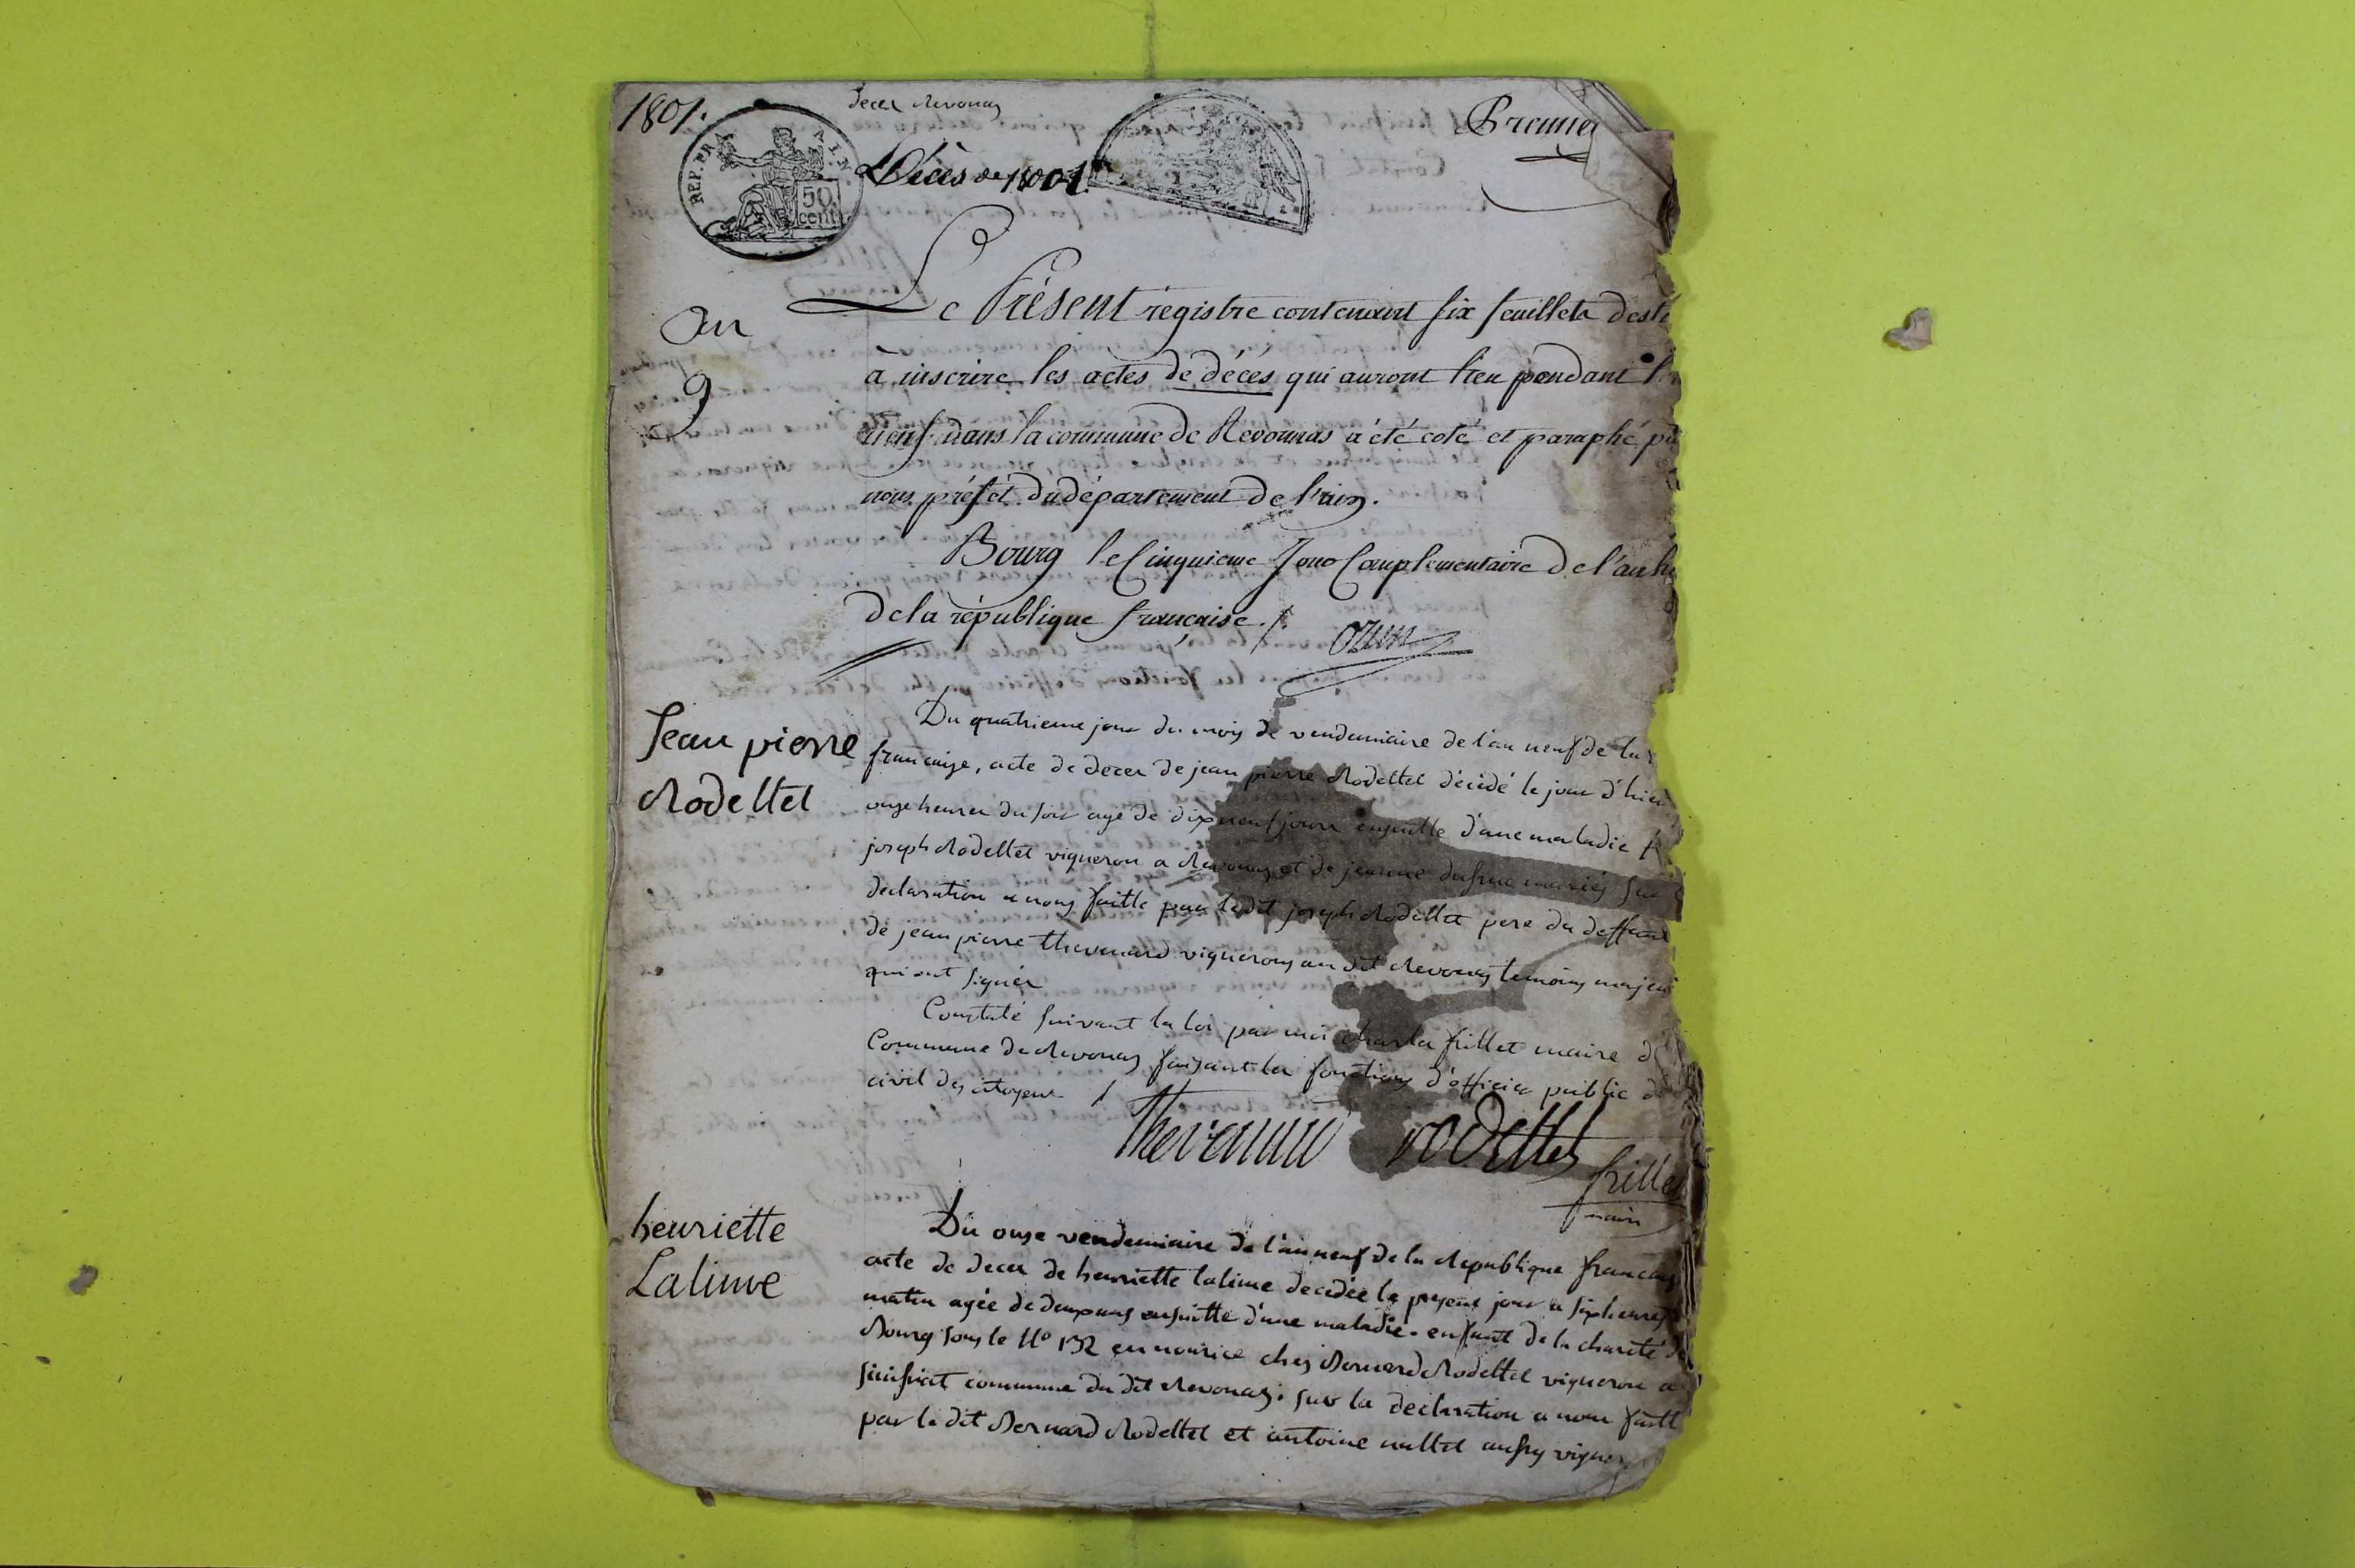 1801.
Decer Revonas
Premier
REP. FRA
50
cent
Décès de 1801
An
9
Le Présent régistre contenant six feuillets desti
à inscrire les actes de décés qui auront lieu pendant l'
neuf dans la commune de Revonnas a été coté et paraphé p
nous préfet du département de l'ain.
Bourg le Cinquieme Jour Complementaire de l'an h
de la république française ./.
ozun
Jean pierre
Rodettet
Du quatrieme jour du mois de vendemiaire de l'an neuf de la
francaise, acte de decer de jean pierre Rodettet décédé le jour d'hier
onze heures du soir agé de dixneuf jours ensuitte d'une maladie
joseph Rodettet vigneron a Revonas et de jeanne mariés sur
declaration a nous faitte par ledit joseph Rodettet pere du deffunt
de jean pierre thevenard vignerons au dit Revonas temoins majeu
qui ont signér
Constaté suivant la loi par moi charles frillet maire d
Commune de Revonas faisant les fonctions d'officier public d
civil des citoyens /
Thevenard rodettet
frillet
maire
henriette
Lalime
Du onze vendemiaire de l'an neuf de la Republique francais
acte de decer de henriette lalime decedée le present jour a six heures
matin agée de deux ans ensuitte d'une maladie. enfant de la charité de
Bourg sous le N° 132 en nourice chez Bernard Rodettet vigneron a
sinifriat commune du dit Revonas. sur la declaration a nous faitt
par le dit Bernard Rodettet et antoine aussy vigner